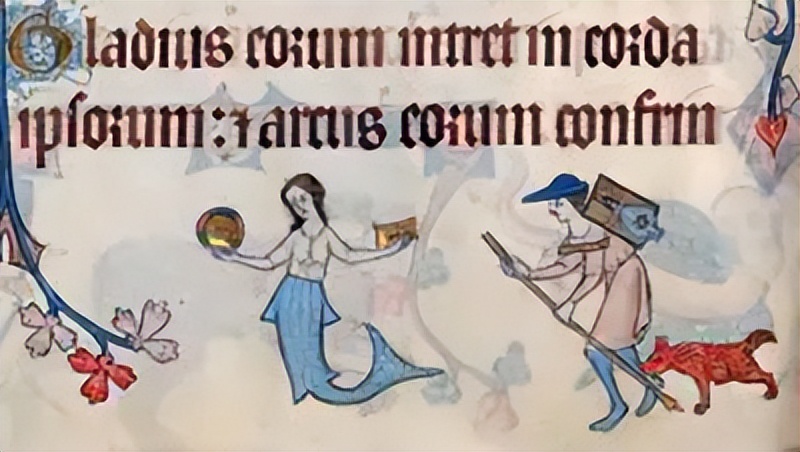 Gladius eorum intret in corda
ipsorum: ⁊ arcus eorum confrin